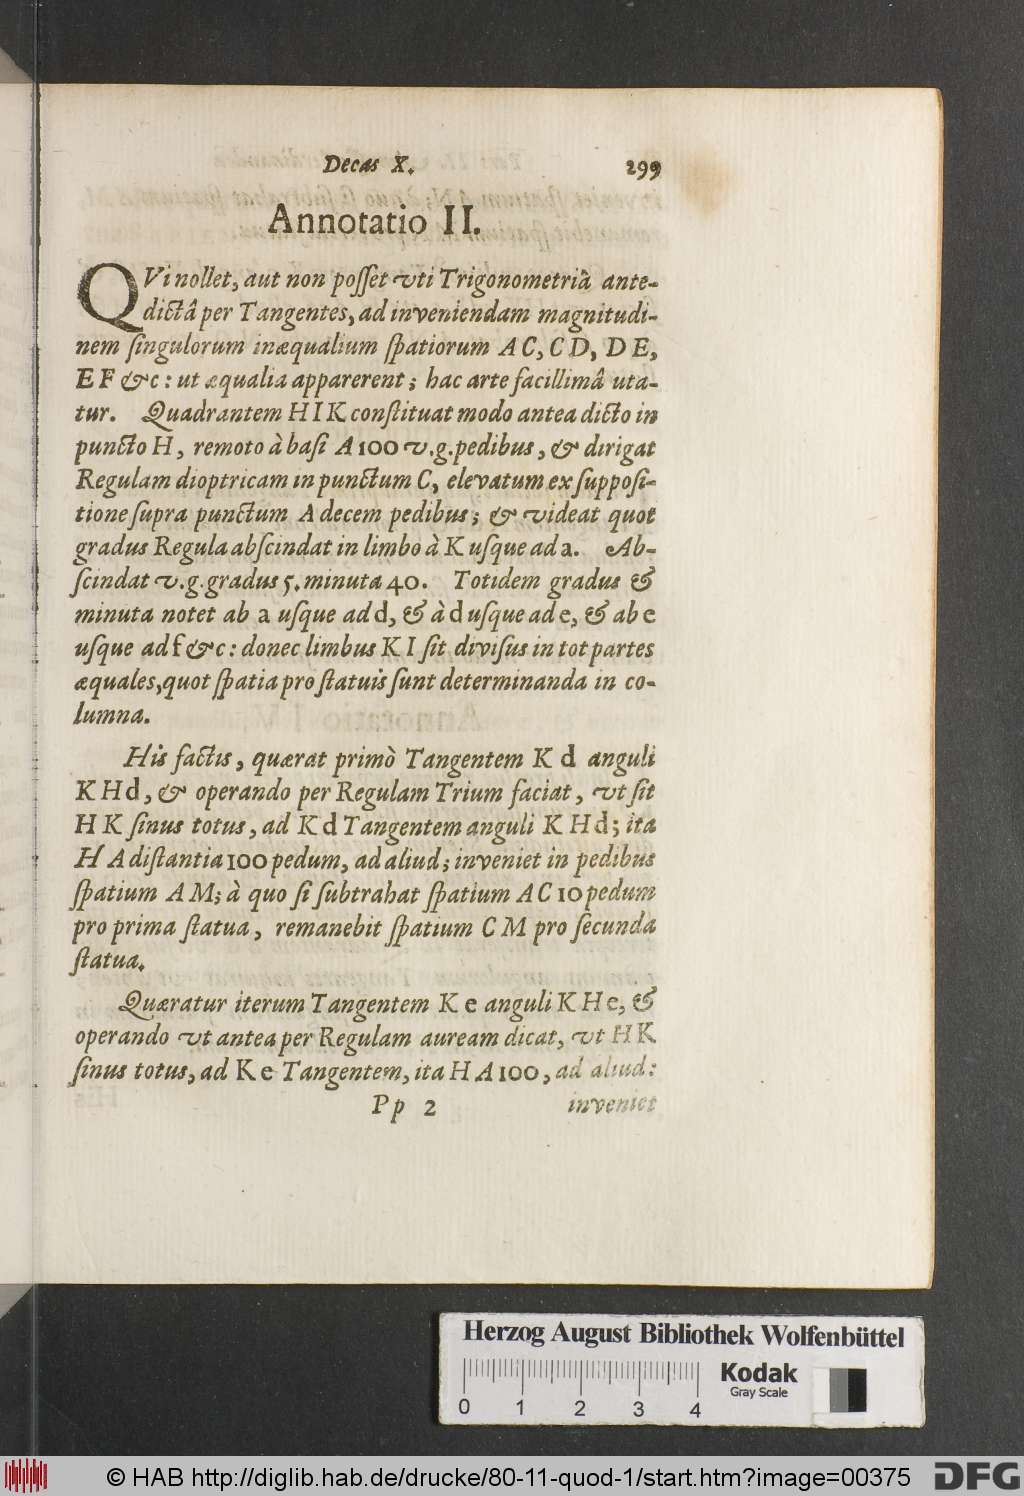 Decas X. 299
Annotatio II.
QVi nollet, aut non poſſet vti Trigonometriâ ante-
dictâ per Tangentes, ad inveniendam magnitudi-
nem ſingulorum inæqualium ſpatiorum A C, C D, D E,
E F &c: ut æqualia apparerent; hac arte facillimâ uta-
tur. Quadrantem H I K conſtituat modo antea dicto in
puncto H, remoto à baſi A 100 v.g. pedibus, & dirigat
Regulam dioptricam in punctum C, elevatum ex ſuppoſi-
tione ſupra punctum A decem pedibus; & videat quot
gradus Regula abſcindat in limbo à K uſque ad a. Ab-
ſcindat v.g. gradus 5. minuta 40. Totidem gradus &
minuta notet ab a uſque ad d, & à d uſque ad e, & ab e
uſque ad f &c: donec limbus K I ſit diviſus in tot partes
æquales, quot ſpatia pro ſtatuis ſunt determinanda in co-
lumna.
His factis, quærat primò Tangentem K d anguli
K H d, & operando per Regulam Trium faciat, vt ſit
H K ſinus totus, ad K d Tangentem anguli K H d; ita
H A diſtantia 100 pedum, ad aliud; inveniet in pedibus
ſpatium A M; à quo ſi ſubtrahat ſpatium A C 10 pedum
pro prima ſtatua, remanebit ſpatium C M pro ſecunda
ſtatua.
Quæratur iterum Tangentem K e anguli K H e, &
operando vt antea per Regulam auream dicat, vt H K
ſinus totus, ad K e Tangentem, ita H A 100, ad aliud:
Pp 2 inveniet
Herzog August Bibliothek Wolfenbüttel
0 1 2 3 4
Kodak
Gray Scale
© HAB http://diglib.hab.de/drucke/80-11-quod-1/start.htm?image=00375
DFG